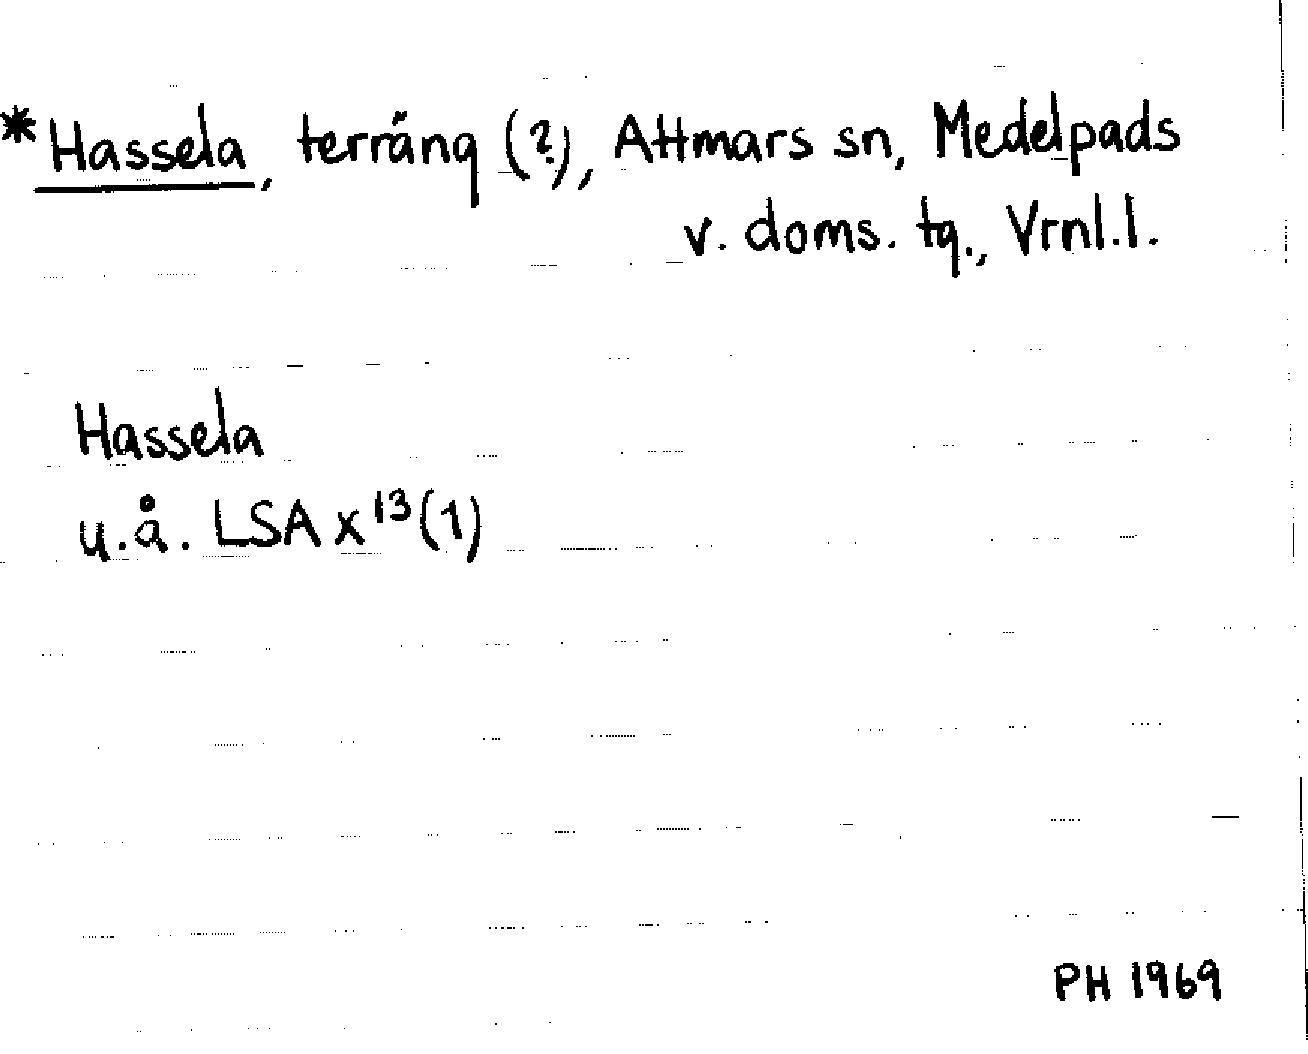 *Hassela, terräng (?), Attmars sn, Medelpads
v. doms. tg., Vrnl.l.
Hassela
u.å. LSA x¹³(1)
PH 1969